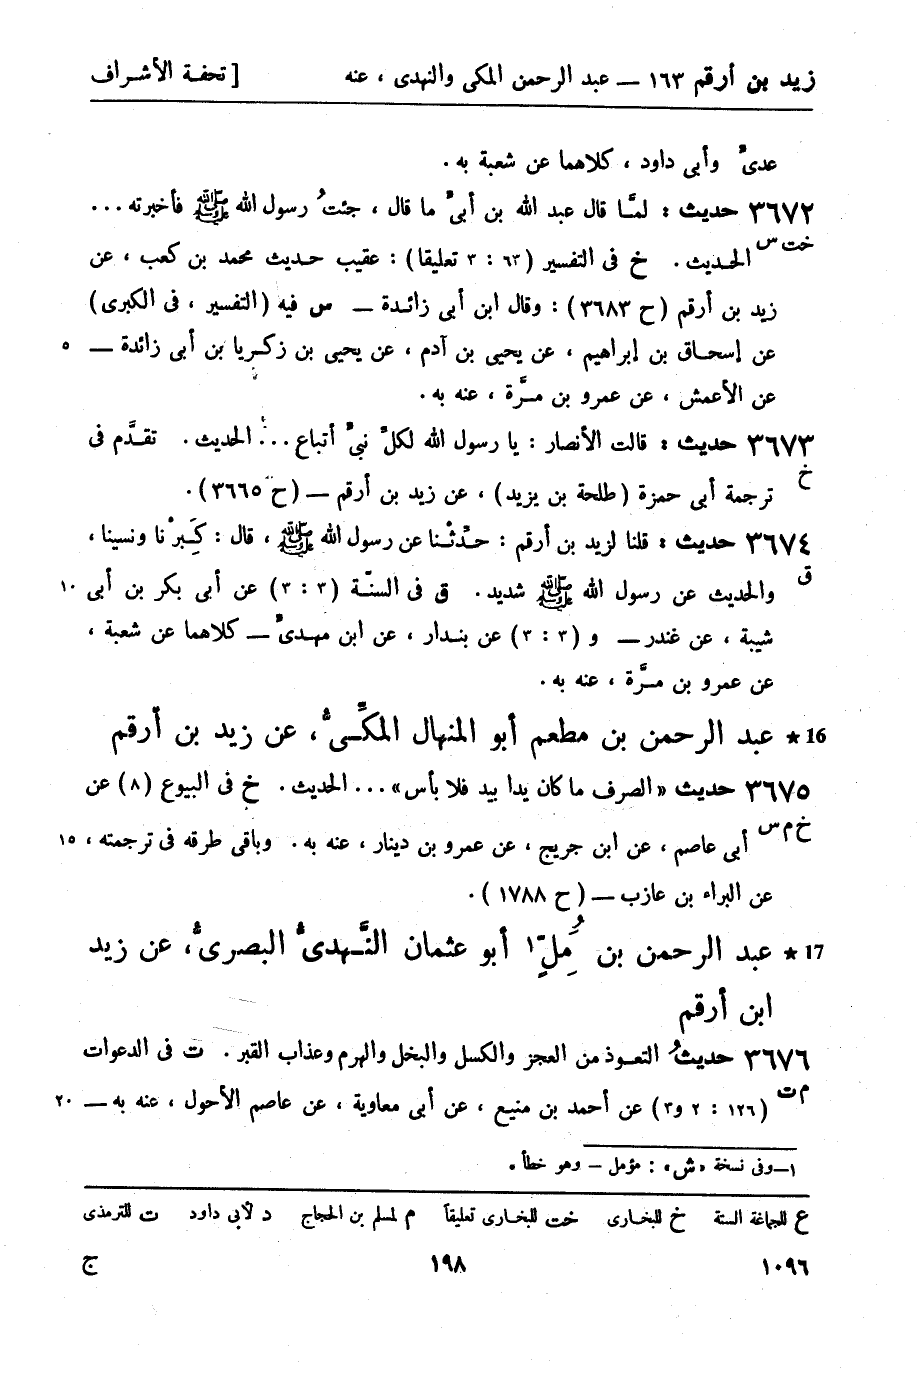 زيد بن أرقم ١٦٣ — عبد الرحمن المكى والنهدى ، عنه [ تحفة الأشراف
عدىّ وأبى داود ، كلاهما عن شعبة به .
٣٦٧٢ حديث : لمَّا قال عبد الله بن أبىّ ما قال ، جئتُ رسول الله ﷺ فأخبرته ...
خت س الحديث . خ فى التفسير (٦٣ : ٣ تعليقا) : عقيب حديث محمد بن كعب ، عن
زيد بن أرقم (ح ٣٦٨٣) : وقال ابن أبى زائدة — س فيه (التفسير ، فى الكبرى)
عن إسحاق بن إبراهيم ، عن يحيى بن آدم ، عن يحيى بن زكريا بن أبى زائدة — ٥
عن الأعمش ، عن عمرو بن مرَّة ، عنه به .
٣٦٧٣ حديث : قالت الأنصار : يا رسول الله لكلّ نبىّ أتباع ... الحديث . تقدَّم فى
خ ترجمة أبى حمزة (طلحة بن يزيد) ، عن زيد بن أرقم — (ح ٣٦٦٥) .
٣٦٧٤ حديث : قلنا لزيد بن أرقم : حدّثْنا عن رسول الله ﷺ ، قال : كَبِرْنا ونسينا ،
ق والحديث عن رسول الله ﷺ شديد . ق فى السنّة (٣ : ٣) عن أبى بكر بن أبى ١٠
شيبة ، عن غندر — و (٣ : ٣) عن بندار ، عن ابن مهدىّ — كلاهما عن شعبة ،
عن عمرو بن مرَّة ، عنه به .
16 * عبد الرحمن بن مطعم أبو المنهال المكِّىُّ ، عن زيد بن أرقم
٣٦٧٥ حديث «الصرف ما كان يدا بيد فلا بأس» ... الحديث . خ فى البيوع (٨) عن
خ م س أبى عاصم ، عن ابن جريج ، عن عمرو بن دينار ، عنه به . وباقى طرقه فى ترجمته ، ١٥
عن البراء بن عازب — (ح ١٧٨٨) .
17 * عبد الرحمن بن مُِلّ١ أبو عثمان النَّهدىُّ البصرىُّ ، عن زيد
ابن أرقم
٣٦٧٦ حديثُ التعوذ من العجز والكسل والبخل والهرم وعذاب القبر . ت فى الدعوات
م ت (١٢٦ : ٢ و٣) عن أحمد بن منيع ، عن أبى معاوية ، عن عاصم الأحول ، عنه به — ٢٠
١—وفى نسخة «ش» : مؤمل — وهو خطأ .
ع للجماعة الستة خ للبخارى خت للبخارى تعليقاً م لمسلم بن الحجاج د لأبى داود ت للترمذى
١٠٩٦ ١٩٨ ج